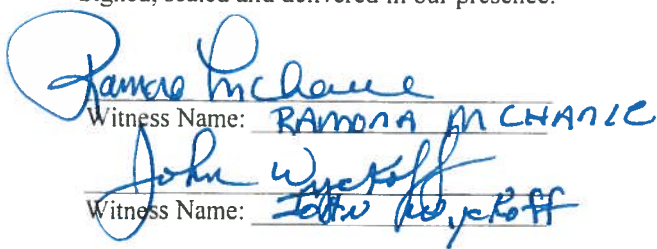 Signed, sealed and delivered in our presence:
Ramona McHale
Witness Name: RAMONA MCHALE
John Wyckoff
Witness Name: John Wyckoff